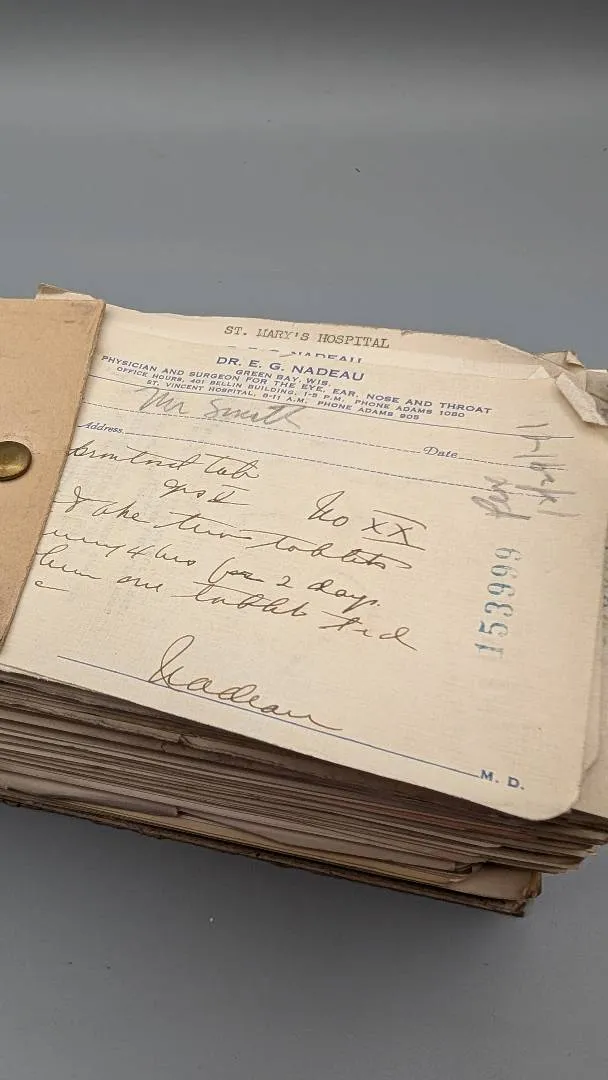 ST. MARY'S HOSPITAL
NADEAU
DR. E. G. NADEAU
GREEN BAY, WIS.
PHYSICIAN AND SURGEON FOR THE EYE, EAR, NOSE AND THROAT
OFFICE HOURS, 401 BELLIN BUILDING, 1-5 P.M. PHONE ADAMS 1080
ST. VINCENT HOSPITAL, 8-11 A.M. PHONE ADAMS 905
Mr Smith
Address
Date
Tab
No XX
Take two tablets
4 hrs for 2 days.
one tablet tid
153999
Nadeau
M. D.